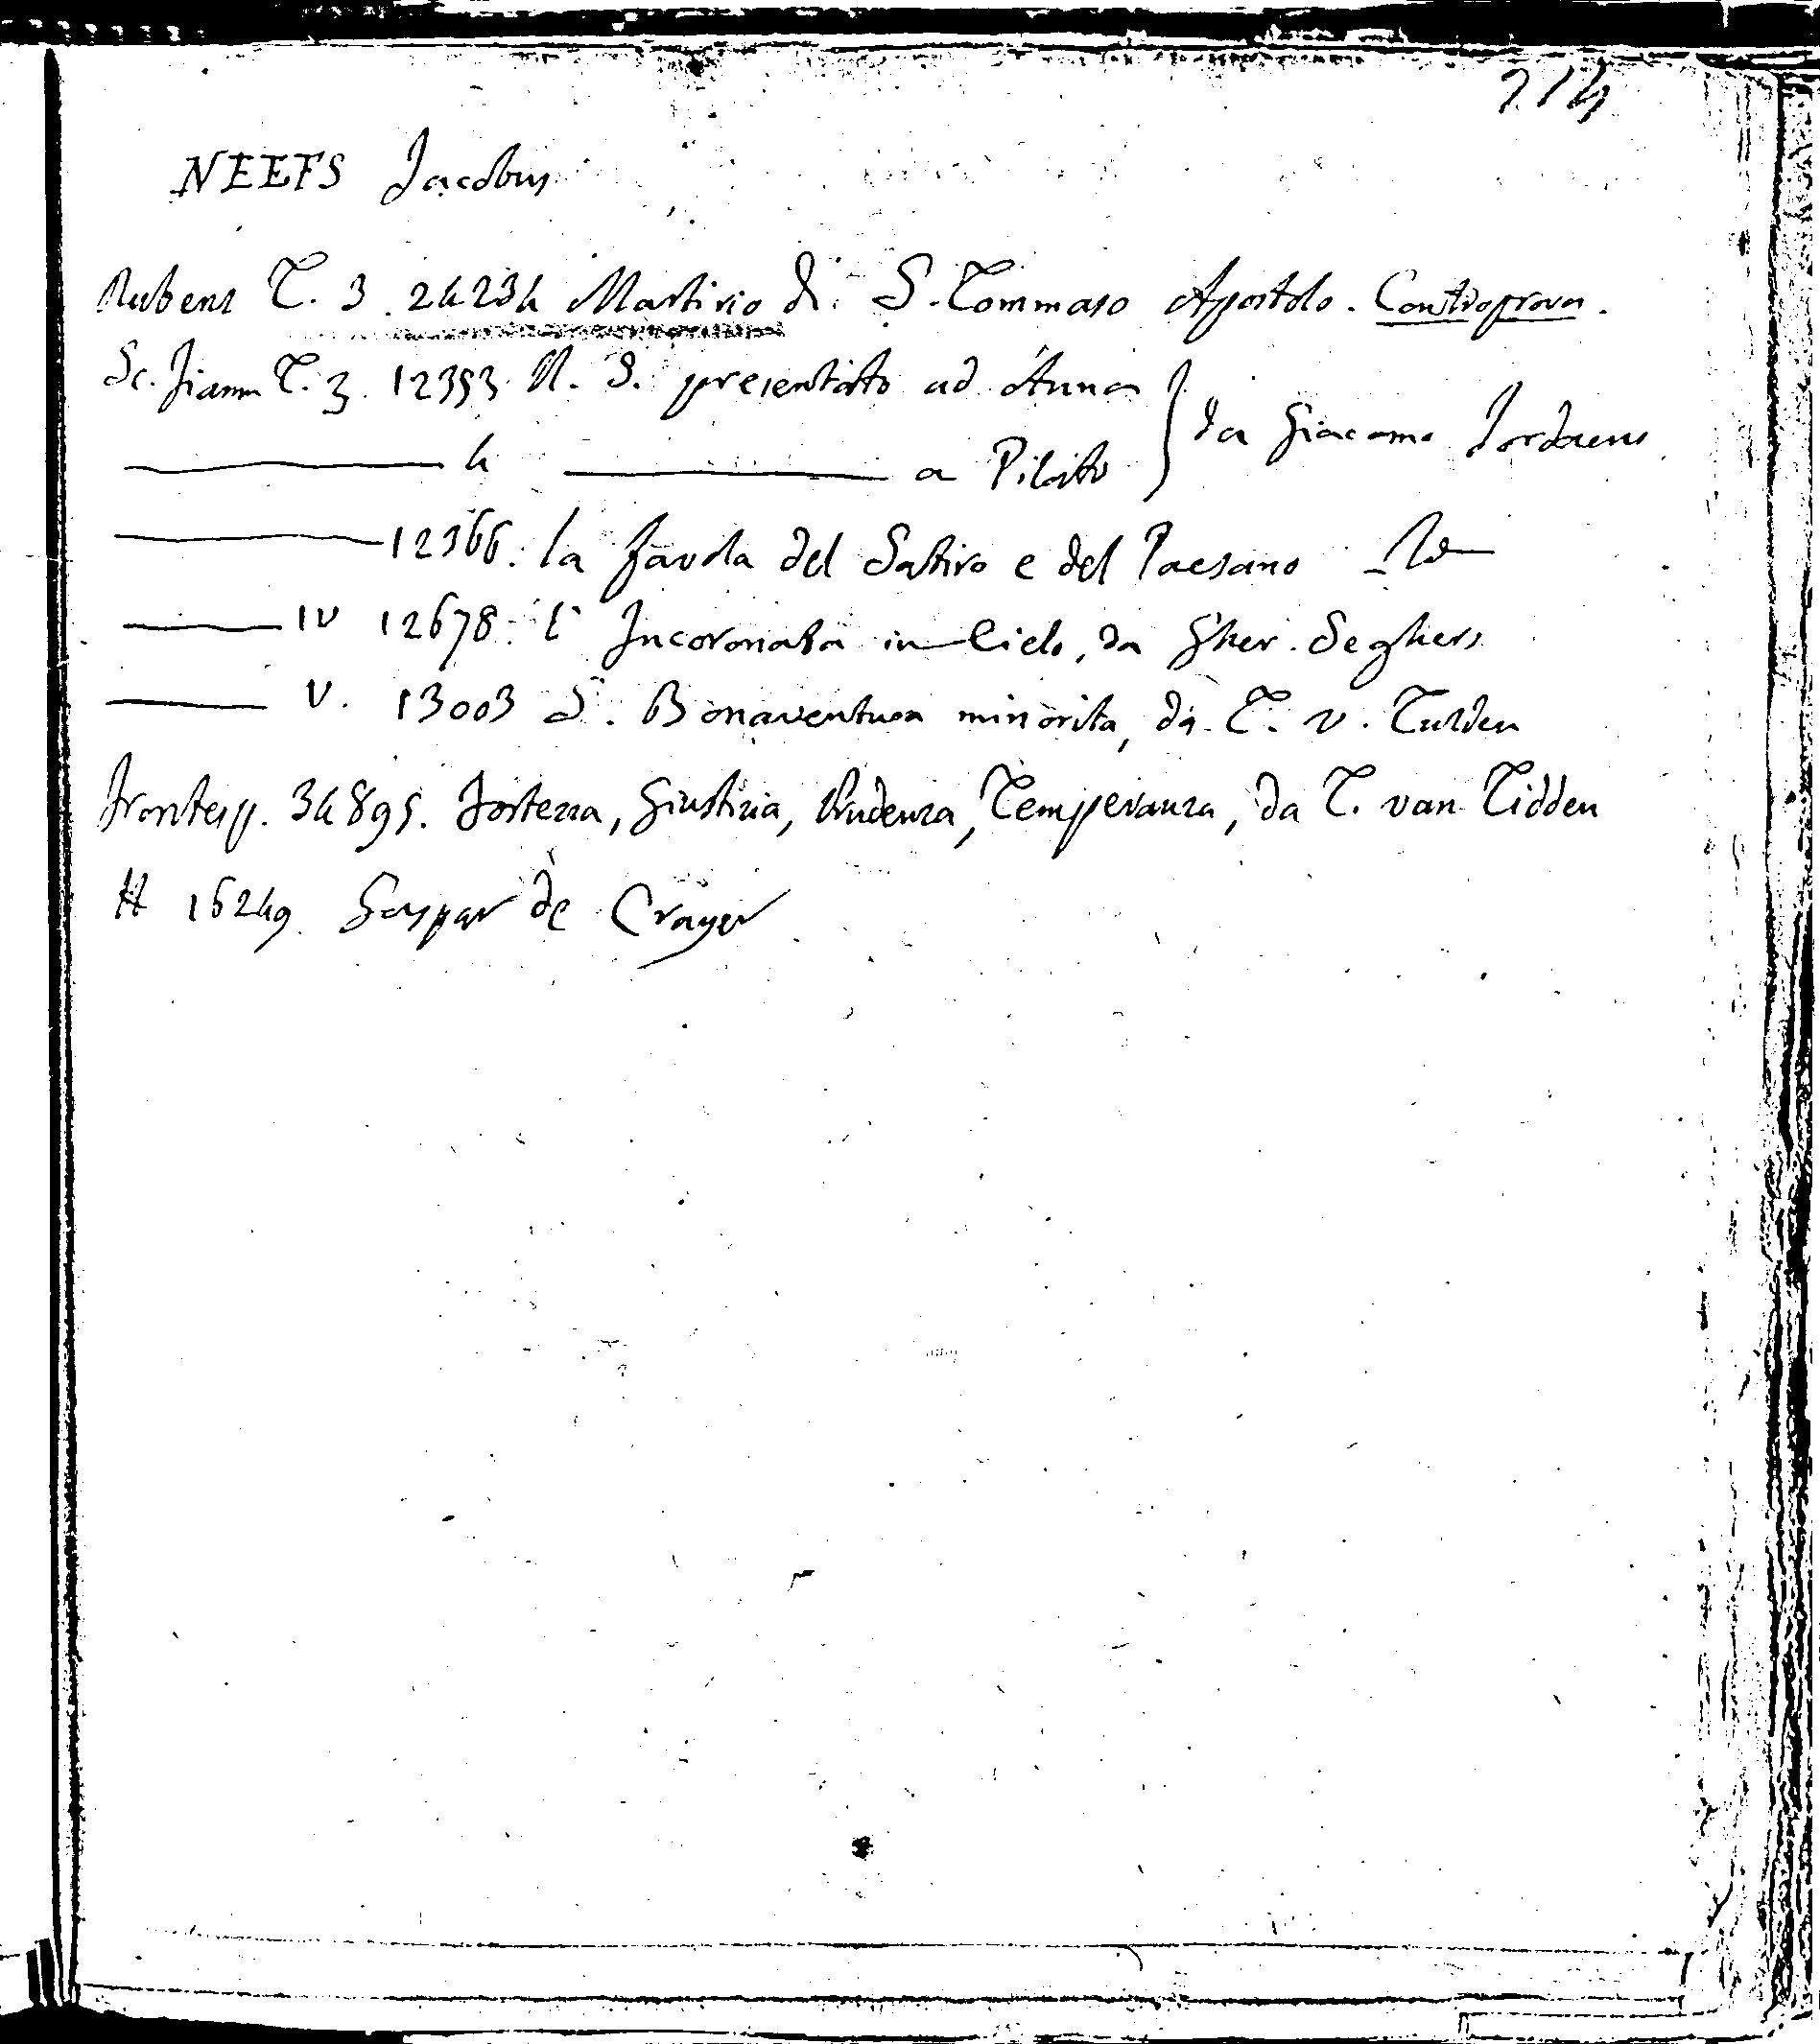 214
NEEFS Jacobus
Rubens T. 3. 24234 Martirio di S. Tommaso Apostolo. Controprova.
Sc. Fiamm T. 3. 12353 N. S. presentato ad Anna
——— 4 ——— a Pilato } da Giacomo Jordaens
——— 12366. la favola del Satiro e del Paesano — Id—
——— IV 12678. l' Incoronata in Cielo, da Gher. Seghers
——— V. 13003 S. Bonaventura minorita, da T. v. Tulden
Frontesp. 34895. Fortezza, Giustizia, Prudenza, Temperanza, da T. van Tidden
H 16249. Gaspar de Crayer